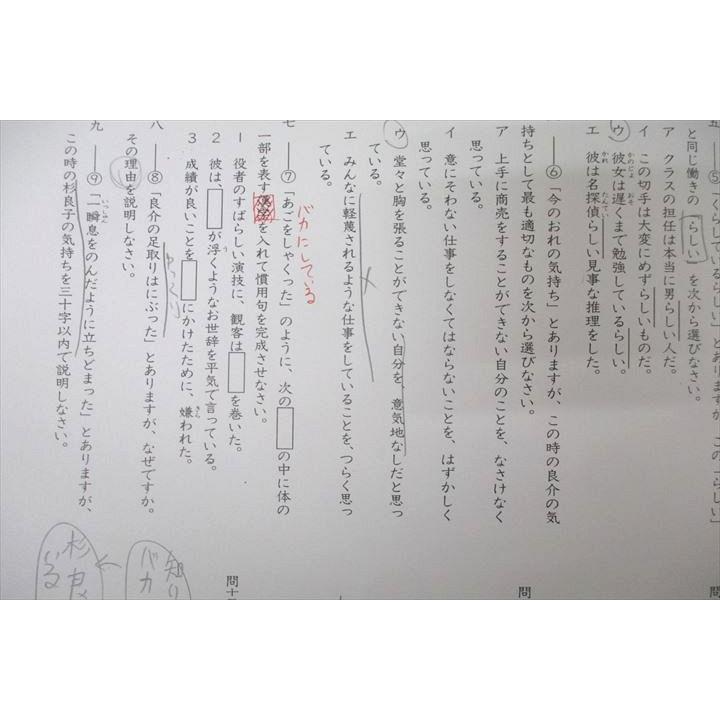 五 ――⑤「くらしているらしい」とありますが、この「らしい」
と同じ働きの「らしい」を次から選びなさい。
ア クラスの担任は本当に男らしい人だ。
イ この切手は大変にめずらしいものだ。
ウ 彼女は遅くまで勉強しているらしい。
エ 彼は名探偵らしい見事な推理をした。
――⑥「今のおれの気持ち」とありますが、この時の良介の気
持ちとして最も適切なものを次から選びなさい。
ア 上手に商売をすることができない自分のことを、なさけなく
思っている。
イ 意にそわない仕事をしなくてはならないことを、はずかしく
思っている。
ウ 堂々と胸を張ることができない自分を、意気地なしだと思っ
ている。
エ みんなに軽蔑されるような仕事をしていることを、つらく思っ
ている。
バカにしている
七 ――⑦「あごをしゃくった」のように、次の□の中に体の
一部を表す を入れて慣用句を完成させなさい。
1 役者のすばらしい演技に、観客は□を巻いた。
2 彼は、□が浮くようなお世辞を平気で言っている。
3 成績が良いことを□にかけたために、嫌われた。
ゆっくり
八 ――⑧「良介の足取りはにぶった」とありますが、なぜですか。
その理由を説明しなさい。
九 ――⑨「一瞬息をのんだように立ちどまった」とありますが、
この時の杉良子の気持ちを三十字以内で説明しなさい。
問
問十
知り
バカ
杉良
いる